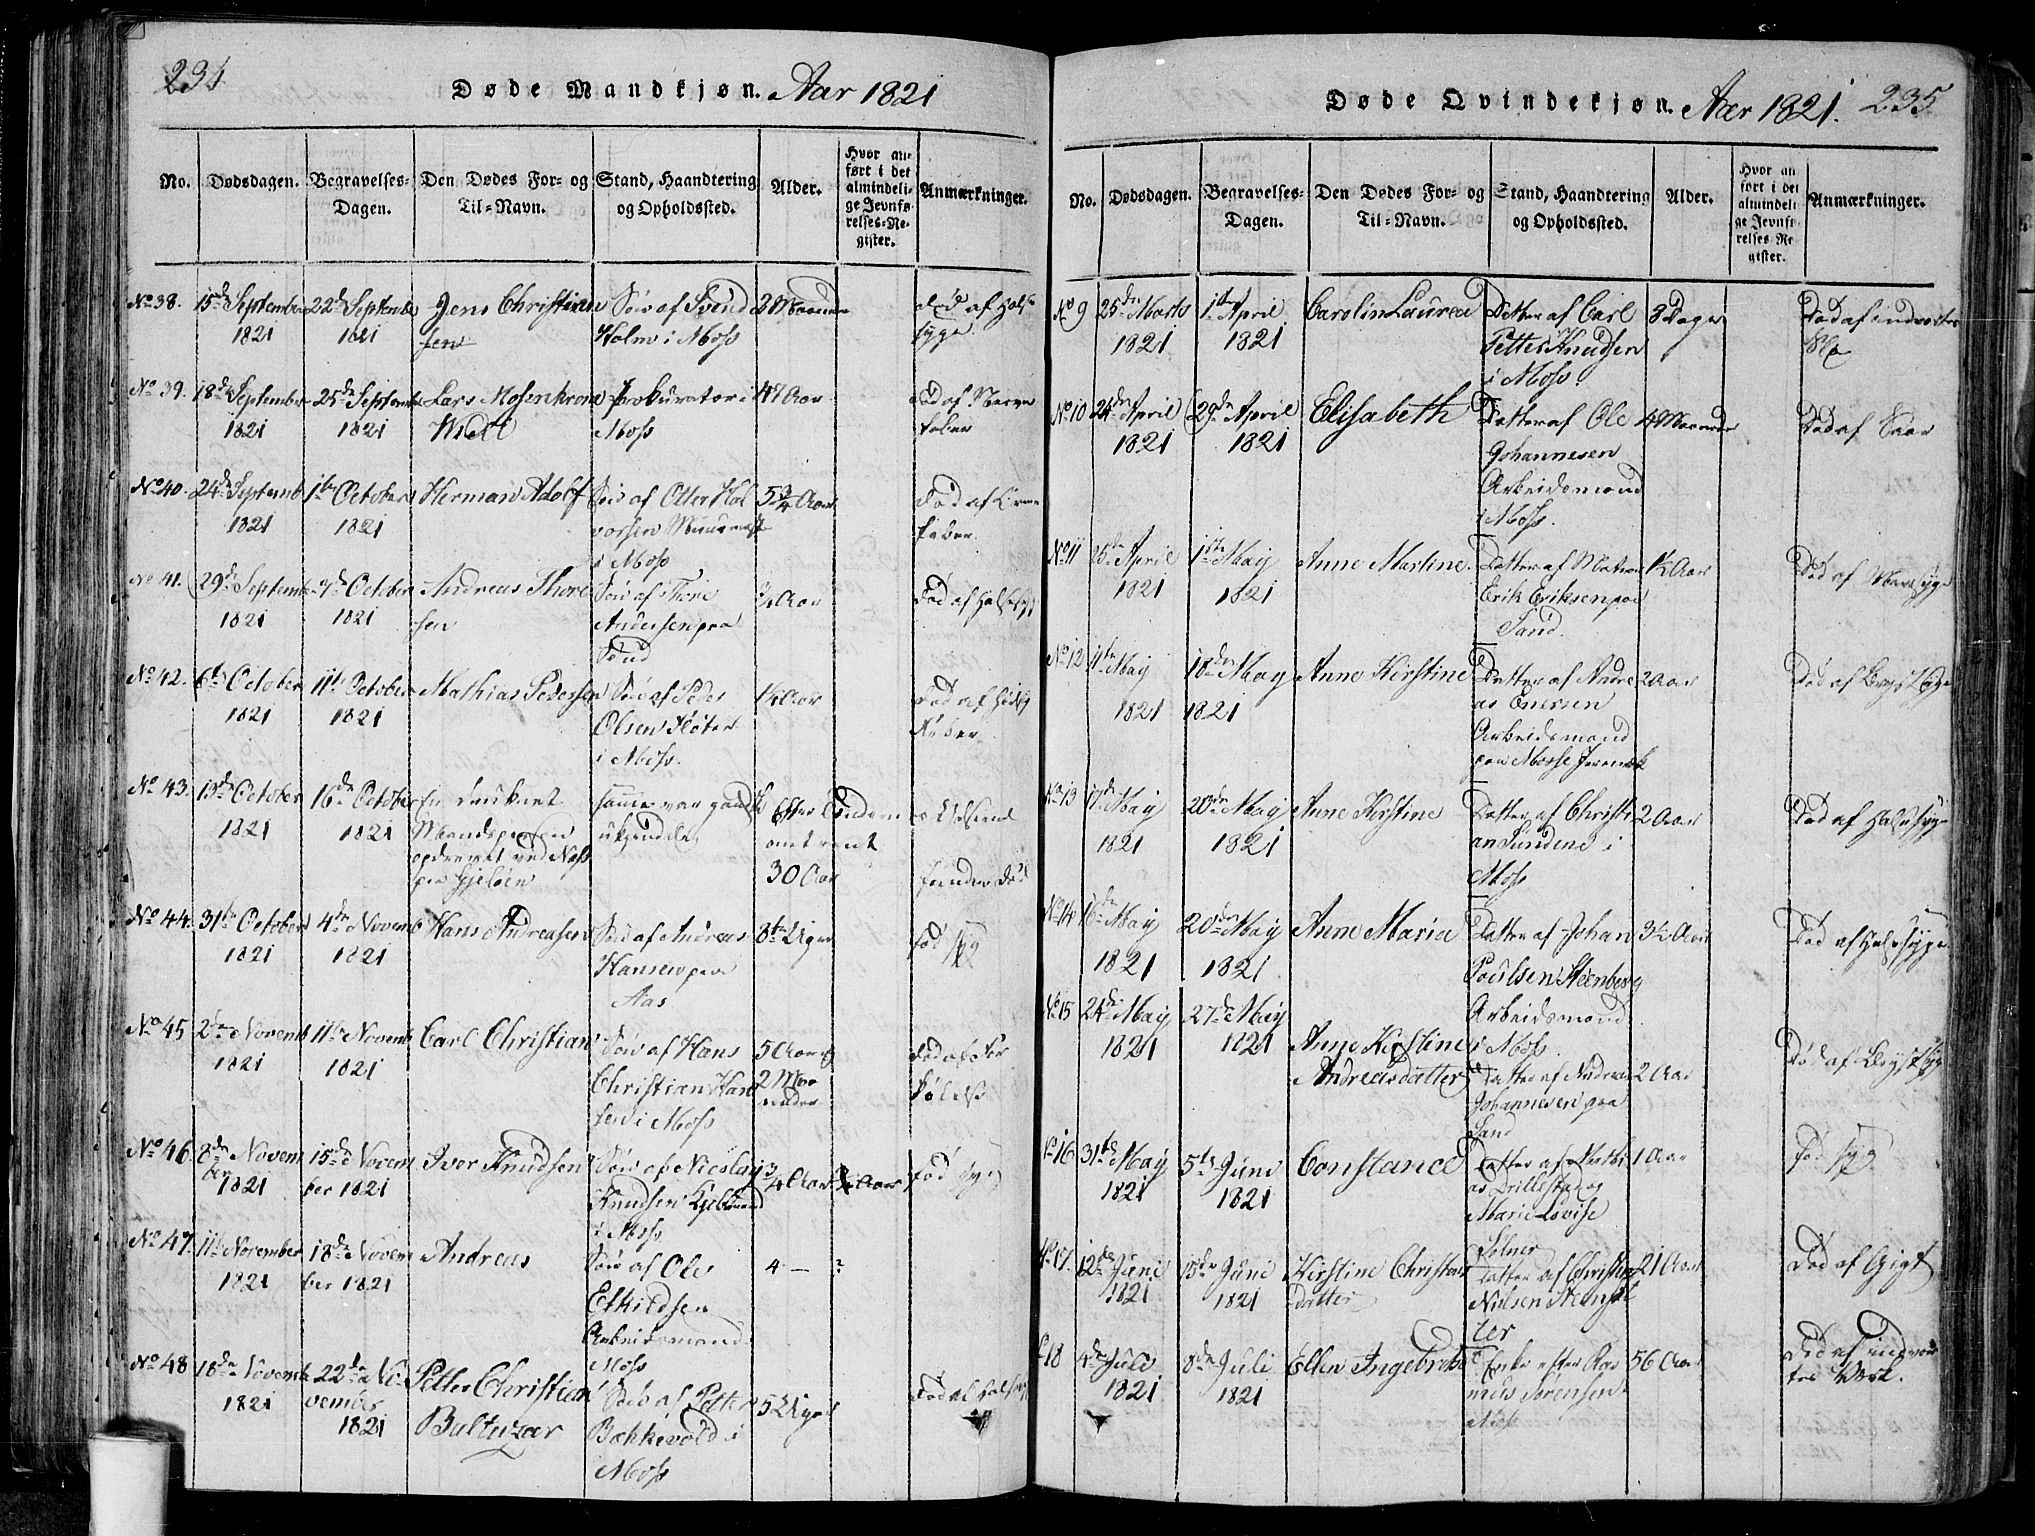 234
Døde Mandkjøn. Aar 1821
No.
Dødsdagen.
Begravelses-Dagen.
Den Dødes For- og Til-Navn.
Stand, Haandtering og Opholdssted.
Alder.
Hvor anført i det almindelige Jevnførelses-Register.
Anmærkninger.
No 38. 15de September 1821
22de Septembe 1821
Jens Christiansen
Søn af Svend Holm i Moss
Død af Halssyge
No 39. 18de September 1821
25de Septembe 1821
Lars Mosenkrone Wedel
Prokurator i Moss
47 Aar
Død af Nerve feber
No 40. 24de Septemb 1821
1te October 1821
Herman Adolf
Søn af Otter Halvorsen Muurmest i Moss
5 3/4 Aar
Død af feber.
No 41. 29de Septemb 1821
7de October 1821
Andreas Thoresen
Søn af Thore Andersen paa Sand
3/4 Aar
Død af Halssyg
No 42. 6te October 1821
11te October 1821
Mathias Pedersen
Søn af Peder Olsen Sloter i Moss.
Aar
Død af Feber
No 43. 13de October 1821
16de October 1821
En druknet Mandsperson opdrevet ved Næss paa Gjeløen
samme var gandske ukjendt
Efter omtrent 30 Aar
funden Død
No 44. 31te October 1821
4de Novemb 1821
Hans Andreasen
Søn af Andreas Hansen paa Aas
8te Uger
fød syg
No 45 2de Novemb 1821
11te Novemb 1821
Carl Christian
Søn af Hans Christian Hansen i Moss
5 Aar og 2 Maaneder
Død af Forkølelse
No 46. 8de November 1821
15de November 1821
Iver Knudsen
Søn af Nicolay Knudsen Kjøbmand i Moss
3/4 Aar
3/4 Aar
fød syg
No 47. 11te November 1821
18de November 1821
Andreas
Søn af Ole Eskildsen Arbeidsmand Moss
4 — ?
No 48 18de Novemb 1821
22de November 1821
Petter Christian Baltuzar
Søn af Petter Bækkevold i Moss
5 Uger
Død af Halssyge
Døde Qvindekjøn. Aar 1821. 235
No.
Dødsdagen.
Begravelses-Dagen.
Den Dødes For- og Til-Navn.
Stand, Haandtering og Opholdssted.
Alder.
Hvor anført i det almindelige Jevnførelses-Register.
Anmærkninger.
No 9 25de Marts 1821
1te April 1821
Carolin Laurea
Datter af Carl Petter Knudsen i Moss
8 Dage
Død af
No 10 24de April 1821
29de April 1821
Elisabeth
Datter af Ole Johannesen Arbeidsmand i Moss.
4 Maaneder
Død af
No 11 25de April 1821
1te May 1821
Anne Martine
Datter af Erik Eriksen paa Sand.
1/2 Aar
Død af
No 12 11te May 1821
18de May 1821
Anne Kirstine
Datter af Andreas Enersen Arbeidsmand paa Mosse Jernværk
2 Aar
Død af Brystsyge
No 13 17de May 1821
20de May 1821
Anne Kirstine
Datter af Christian Sundene i Moss
2 Aar
Død af Halssyge
No 14 16de May 1821
20de May 1821
Anne Maria
Datter af Johan Poulsen Steenberg Arbeidsmand i Moss.
3 1/2 Aar
Død af Halssyge
No 15 24de May 1821
27de May 1821
Anne Kirstine Andreasdatter
Datter af Andreas Johannesen paa Sand
2 Aar
Død af Brystsyge
No 16 31te May 1821
5te Juni 1821
Constance
Datter af Mathias Drillestad og Marie Lovise Solner
1 Aar
fød syg
No 17. 12de Juni 1821
15de Juni 1821
Kirstine Christens Datter
Datter af Christen Nielsen
21 Aar
Død af Gigt
18 4de Juli 1821
8de Juli 1821
Ellen Ingebrets
Enke efter Rasmus Sørensen Moss
56 Aar
Død af indvortes Værk.